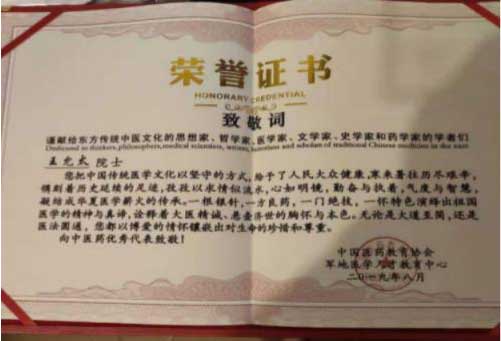 荣誉证书
HONORARY CREDENTIAL
致敬词
谨献给东方传统中医文化的思想家、哲学家、医学家、文学家、史学家和药学家的学者们
Dedicated to thinkers, philosophers, medical scientists, writers, historians and scholars of traditional Chinese medicine in the east
王允太 院士
您把中国传统医学文化以坚守的方式，给予了人民大众健康，寒来暑往历尽艰辛，
镌刻着历史延续的足迹，孜孜以求情似流水，心如明镜，勤奋与执着，气度与智慧，
凝结成华夏医学薪火的传承。一根银针，一方良药，一门绝技，一怀特色演绎出祖国
医学的精神与真谛，诠释着大医精诚、悬壶济世的胸怀与本色。无论是大道至简，还是
医法圆通，您都以博爱的情怀镶嵌出对生命的珍惜和尊重。
向中医药优秀代表致敬！
中国医药教育协会
军地医学人才教育中心
二〇一九年八月